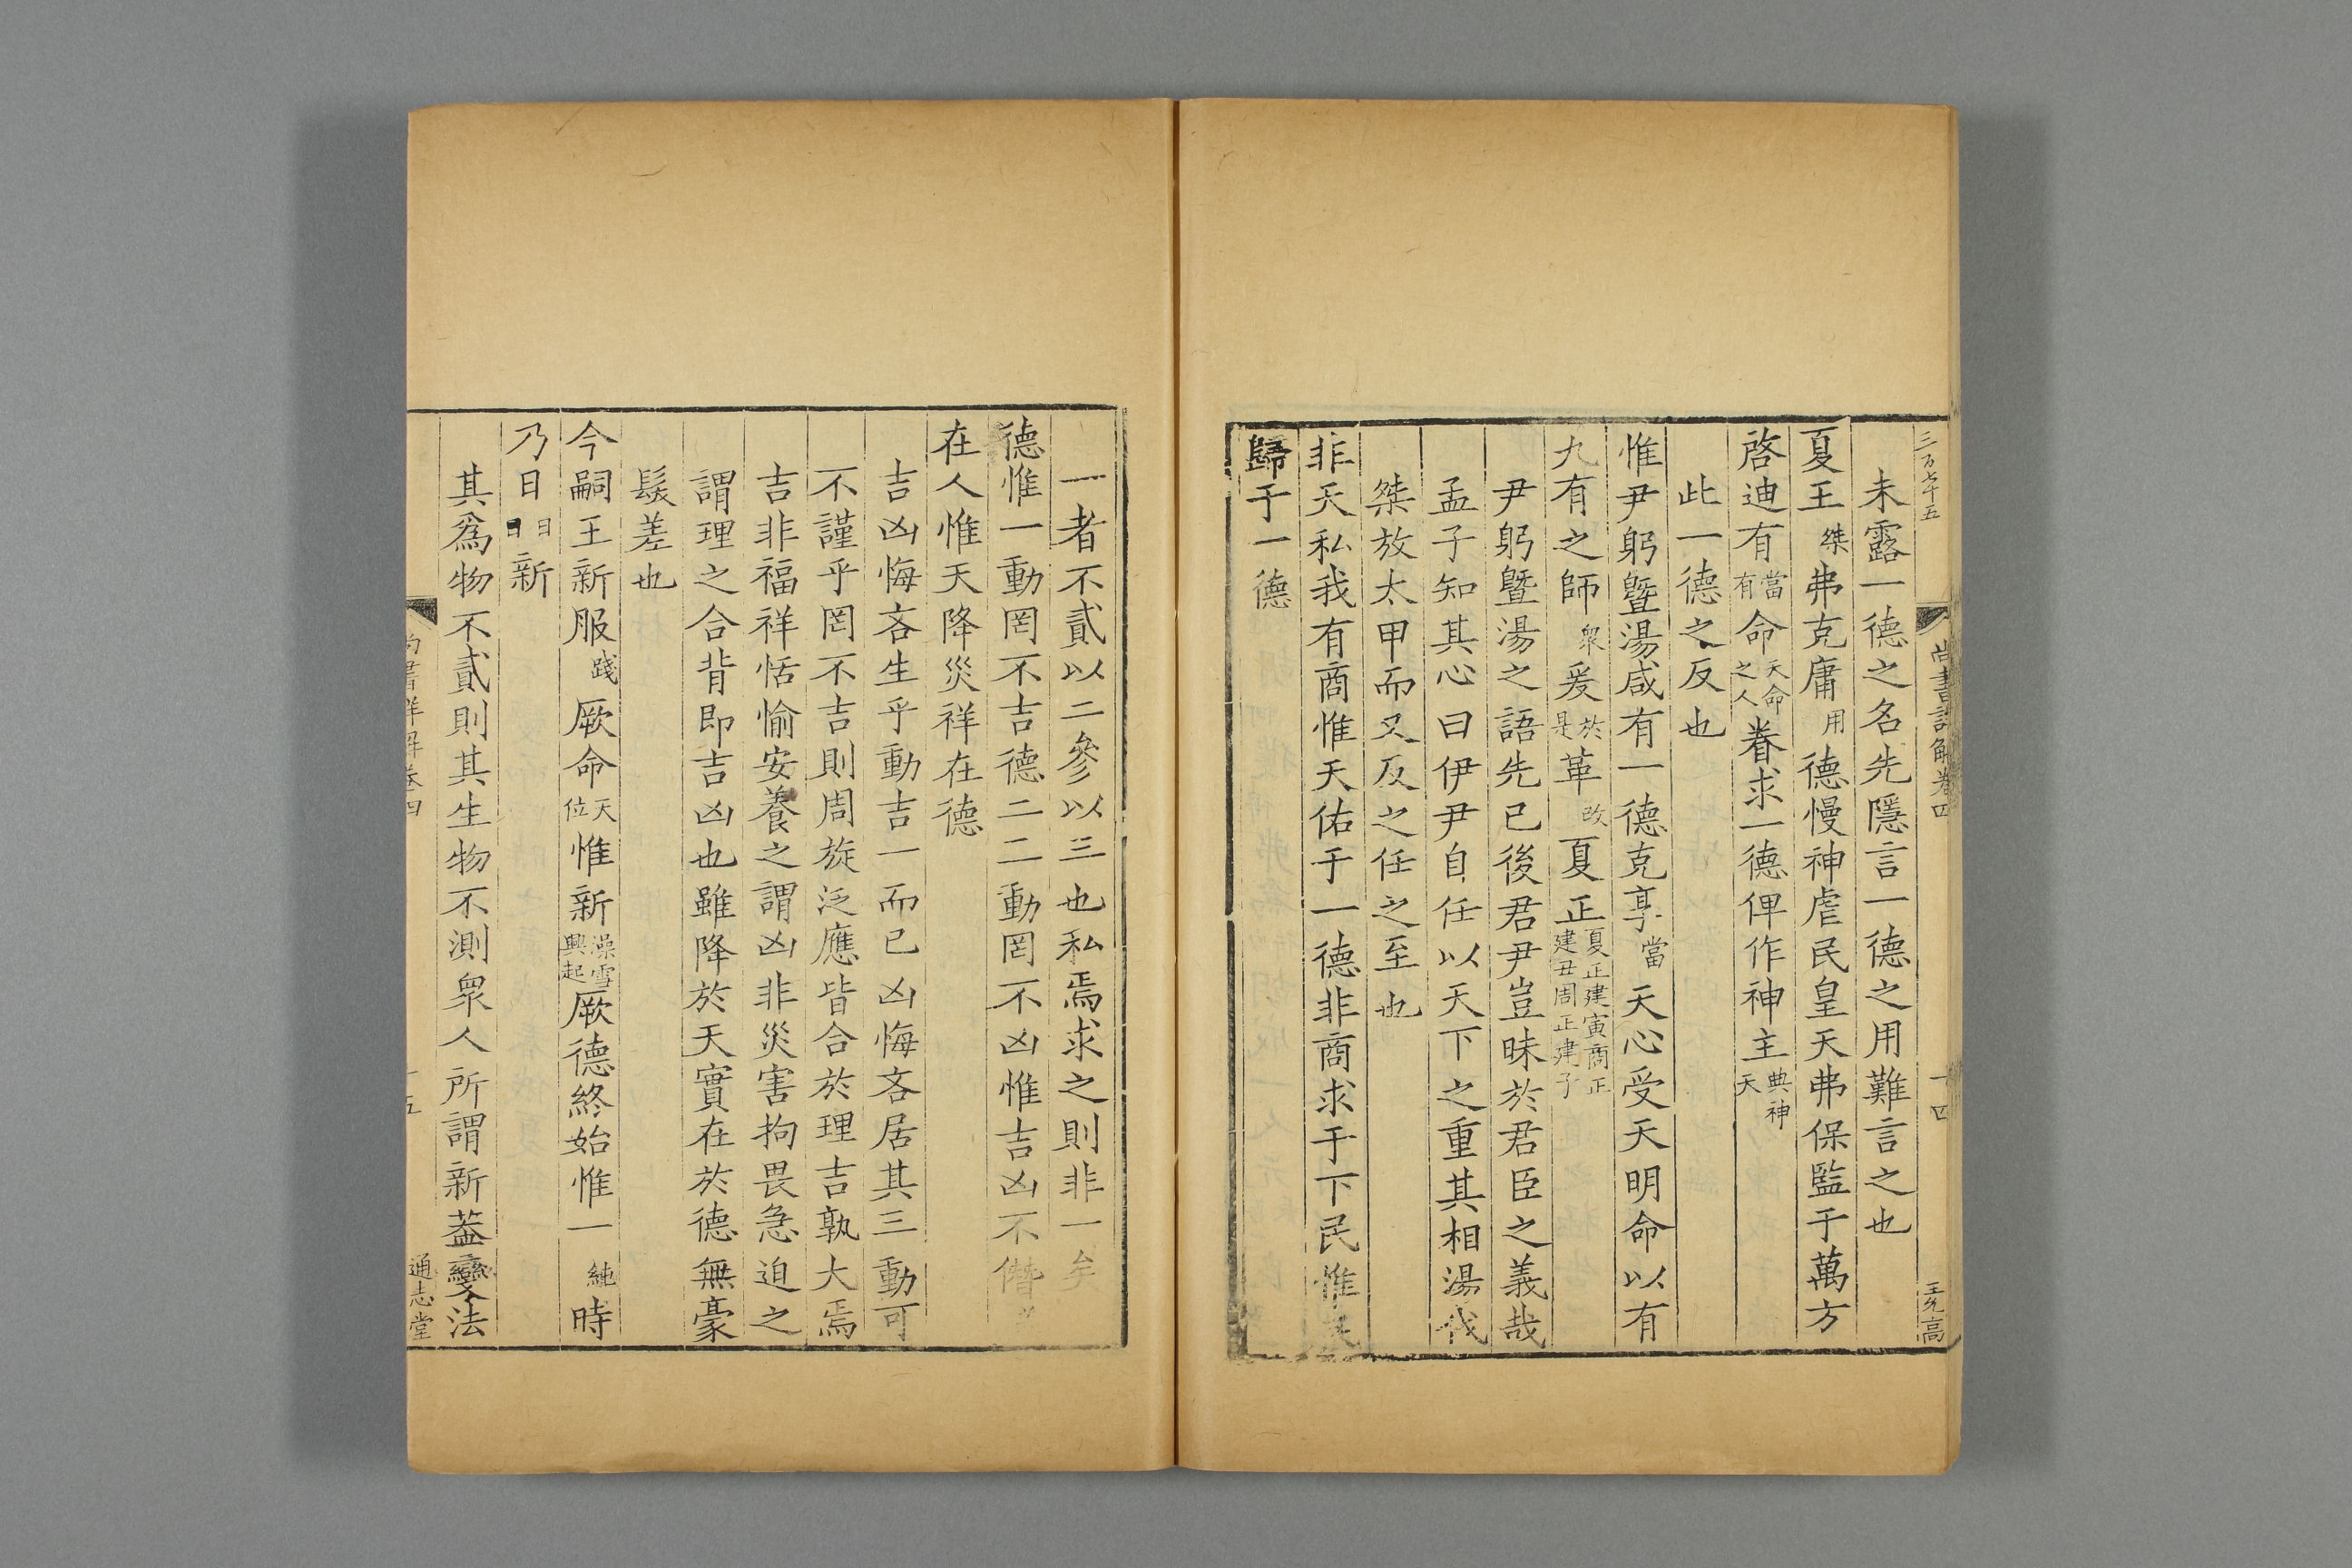 三百七十五
尚書詳解卷四
十四
王允高
未露一德之名先隱言一德之用難言之也
夏王桀弗克庸用德慢神虐民皇天弗保監于萬方
啓迪有當有命天命之人眷求一德俾作神主典神天
此一德之反也
惟尹躬暨湯咸有一德克享當天心受天明命以有
九有之師衆爰於是革改夏正夏正建寅商正建丑周正建子
尹躬暨湯之語先已後君尹豈昧於君臣之義哉
孟子知其心曰伊尹自任以天下之重其相湯伐
桀放太甲而又反之任之至也
非天私我有商惟天佑于一德非商求于下民惟民
歸于一德
一者不貳以二參以三也私焉求之則非一矣
德惟一動罔不吉德二二動罔不凶惟吉凶不僭
在人惟天降災祥在德
吉凶悔吝生乎動吉一而已凶悔吝居其三動可
不謹乎罔不吉則周旋泛應皆合於理吉孰大焉
吉非福祥恬愉安養之謂凶非災害拘畏急迫之
謂理之合背即吉凶也雖降於天實在於德無豪
髮差也
今嗣王新服踐厥命天位惟新澡雪興起厥德終始惟一純時
乃日日日新
其爲物不貳則其生物不測衆人所謂新蓋變法
尚書詳解卷四
十五
通志堂